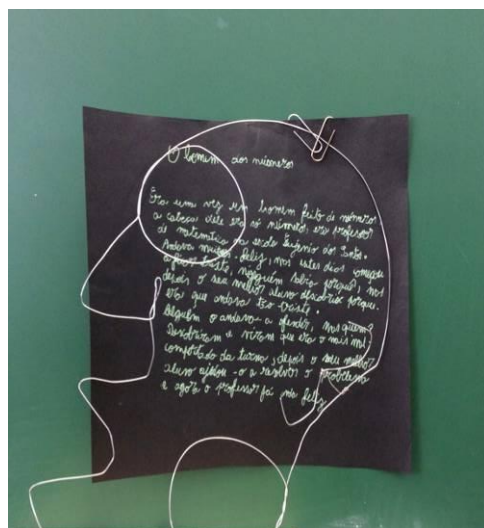 O homem dos números
Era uma vez um homem feito de números
a cabeça dele era só números, era professor
de matemática na escola Eugénio dos Santos.
Andava muito feliz, mas estes dias começou
a ficar triste, ninguém sabia porquê, mas
depois o seu melhor aluno descobriu porque
era que andava tão triste.
Alguém o andava a ofender, mas quem?
Descobriram e viram que era o mais mal
comportado da turma, depois o seu melhor
aluno ajudou-o a resolver o problema
e agora o professor já feliz